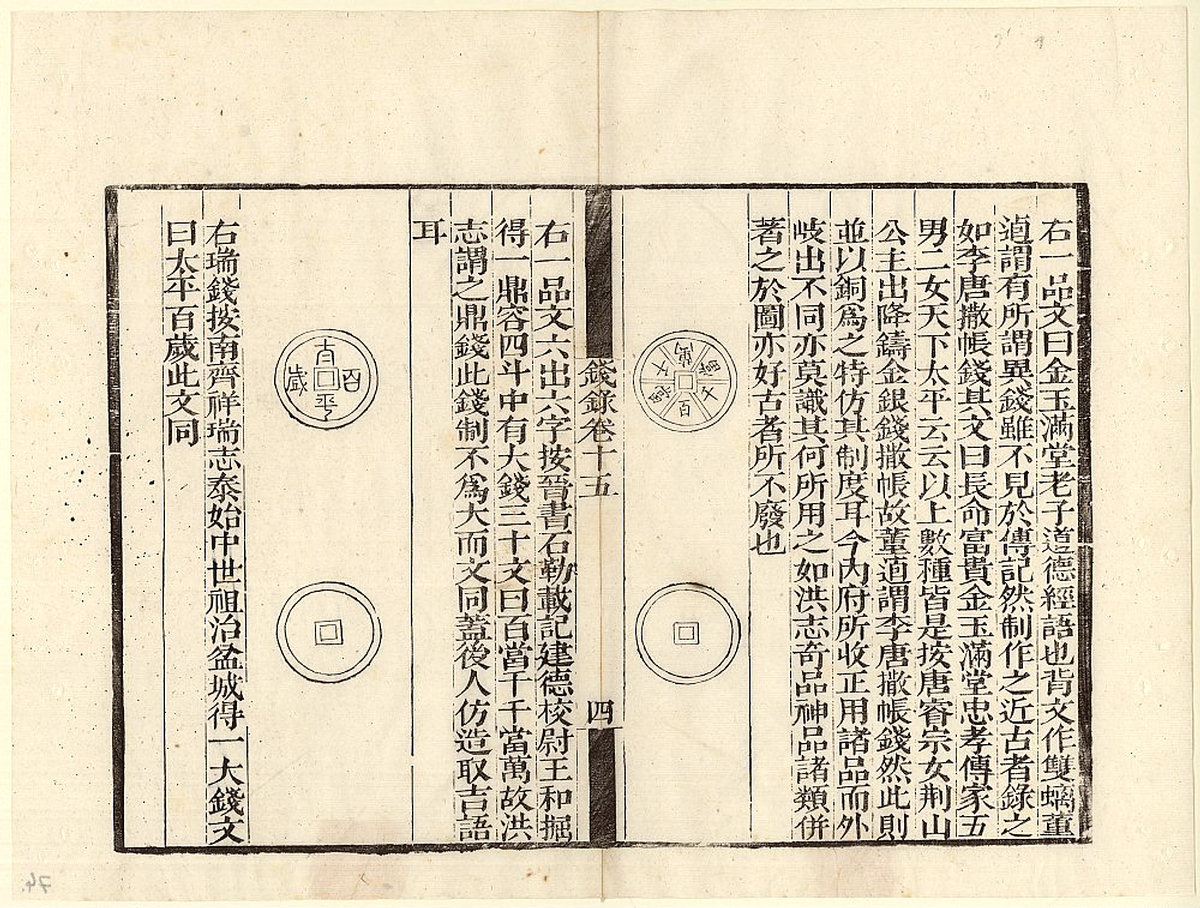 右一品文曰金玉滿堂老子道德經語也背文作雙螭董
逌謂有所謂異錢雖不見於傳記然制作之近古者錄之
如李唐撒帳錢其文曰長命富貴金玉滿堂忠孝傳家五
男二女天下太平云云以上數種皆是按唐睿宗女荆山
公主出降鑄金銀錢撒帳故董逌謂李唐撒帳錢然此則
並以銅爲之特仿其制度耳今內府所收正用諸品而外
岐出不同亦莫識其何所用之如洪志奇品神品諸類併
著之於圖亦好古者所不廢也
百當千千當萬
錢錄卷十五
四
右一品文六出六字按晉書石勒載記建德校尉王和掘
得一鼎容四斗中有大錢三十文曰百當千千當萬故洪
志謂之鼎錢此錢制不爲大而文同蓋後人仿造取吉語
耳
太平百歲
右瑞錢按南齊祥瑞志泰始中世祖治盆城得一大錢文
曰太平百歲此文同
74.